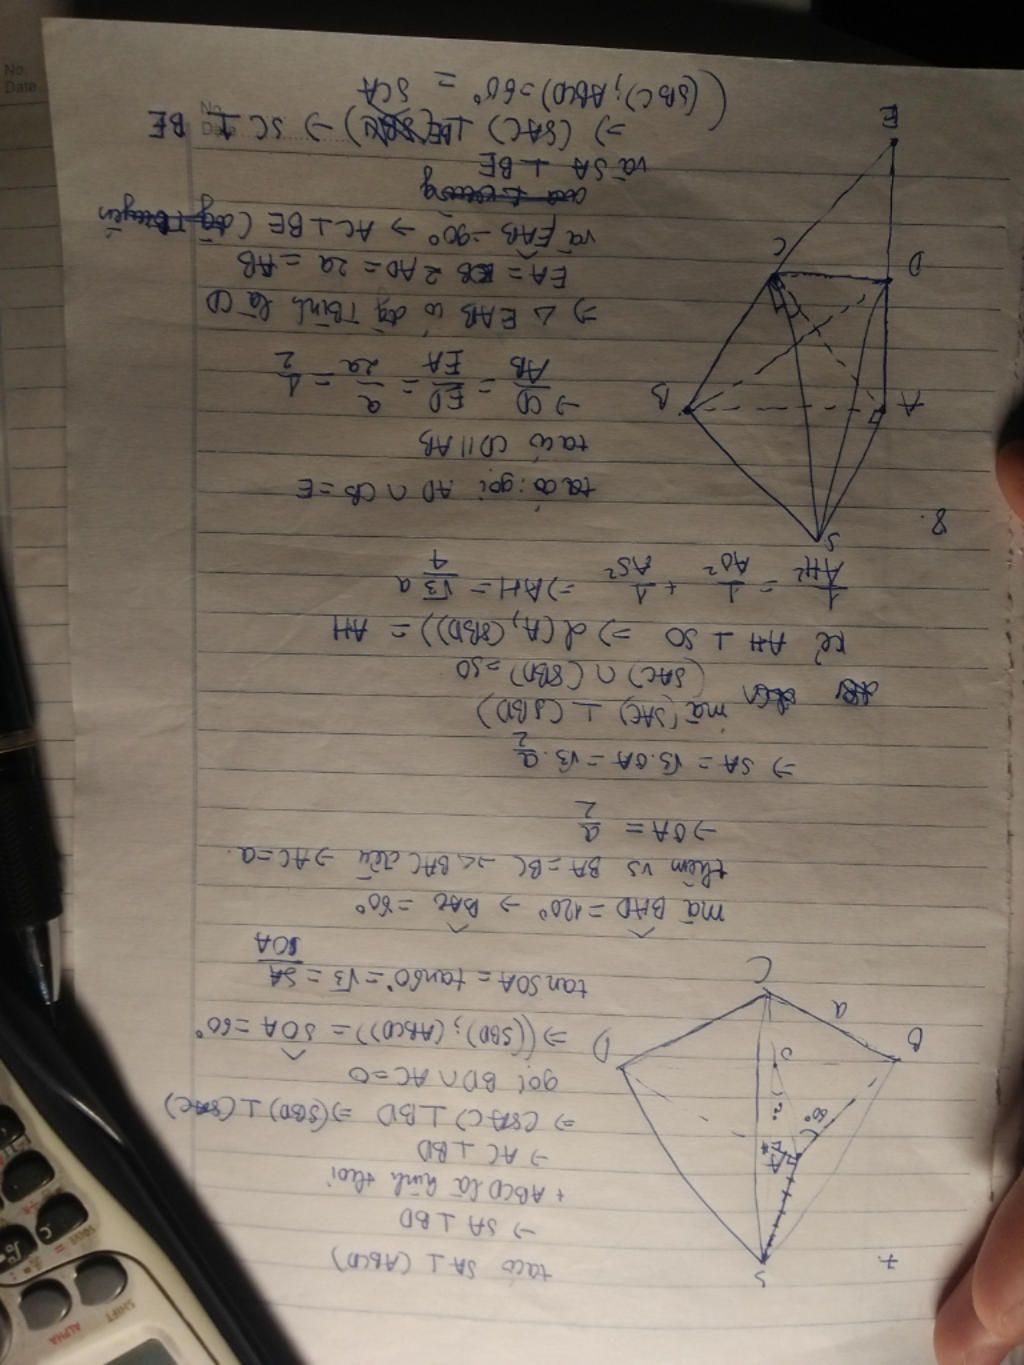 7.
ta có SA ⊥ (ABCD)
→ SA ⊥ BD
+ ABCD là hình thoi
→ AC ⊥ BD
⇒ (SAC) ⊥ BD ⇒ (SBD) ⊥ (SAC)
gọi BD ∩ AC = O
⇒ ((SBD); (ABCD)) = SOA = 60°
tan SOA = tan 60° = √3 = SA/OA
S
A
60°
B
O
D
a
C
mà BAD = 120° → BAC = 60°
thêm vs BA = BC → △ BAC đều → AC = a.
→ OA = a/2
⇒ SA = √3.OA = √3.a/2
mà (SAC) ⊥ (SBD)
(SAC) ∩ (SBD) = SO
kẻ AH ⊥ SO ⇒ d(A, (SBD)) = AH
1/AH² = 1/AO² + 1/AS² ⇒ AH = √3 a/4
8.
S
A
B
D
C
E
ta có: gọi AD ∩ CB = E
ta có CD // AB
→ CD/AB = ED/EA = a/2a = 1/2
⇒ △ EAB có đg TBình là CD
EA = 2AD = 2a = AB
và EAB = 90° → AC ⊥ BE
và SA ⊥ BE
⇒ (SAC) ⊥ BE ⇒ SC ⊥ BE
((SBC); ABCD) = 60° = SCA
No.
Date
No.
Date
SHIFT
ALPHA